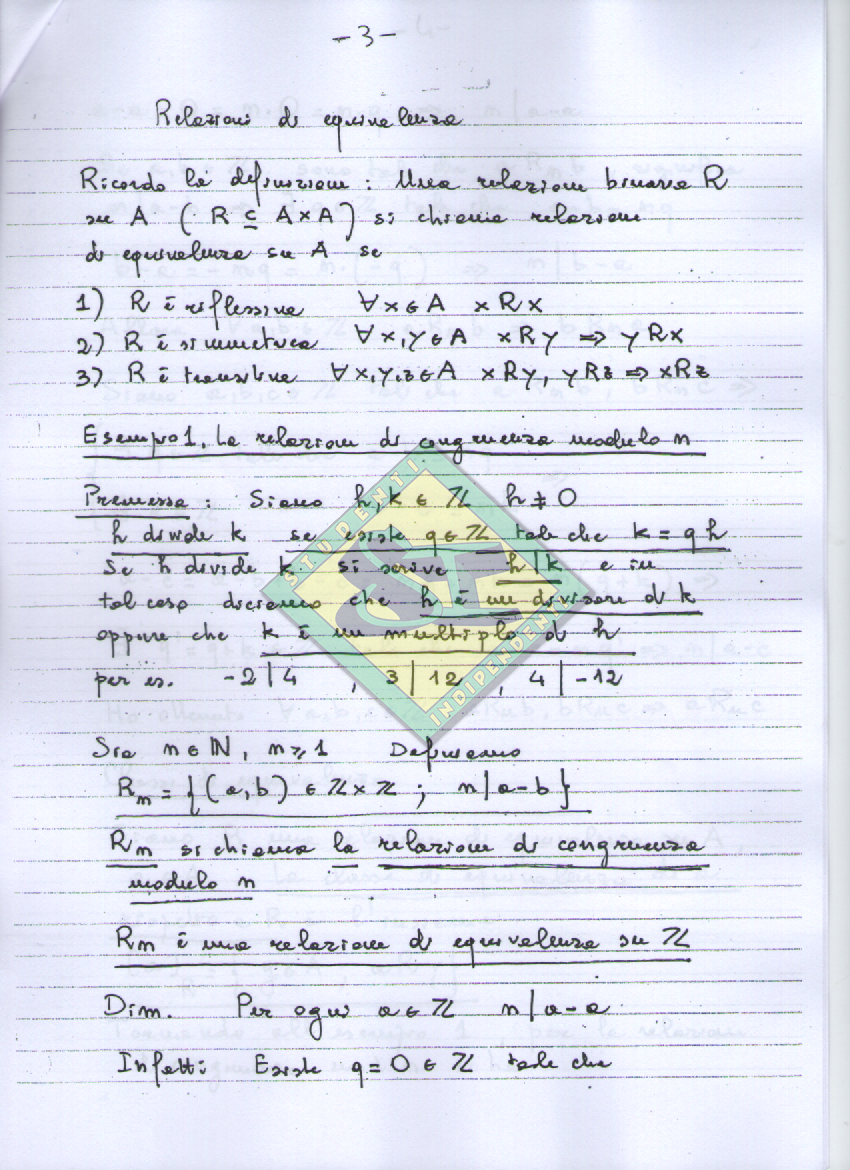 -3-
Relazioni di equivalenza
Ricordo la definizione : Una relazione binaria R
su A ( R ⊆ A×A ) si chiama relazione
di equivalenza su A se
1) R è riflessiva ∀x∈A xRx
2) R è simmetrica ∀x,y∈A xRy ⇒ yRx
3) R è transitiva ∀x,y,z∈A xRy, yRz ⇒ xRz
Esempio 1. La relazione di congruenza modulo n
Premessa : Siano h,k ∈ ℤ h ≠ 0
h divide k se esiste q∈ℤ tale che k = qh
Se h divide k si scrive h|k e in
tal caso diciamo che h è un divisore di k
oppure che k è un multiplo di h
per es. -2|4 , 3|12 , 4|-12
STUDENTI
INDIPENDENTI
Sia n∈ℕ, n≥1 Definiamo
Rn = {(a,b) ∈ ℤ×ℤ ; n|a-b}
Rn si chiama la relazione di congruenza
modulo n
Rn è una relazione di equivalenza su ℤ
Dim. Per ogni a∈ℤ n|a-a
Infatti: Esiste q=0∈ℤ tale che